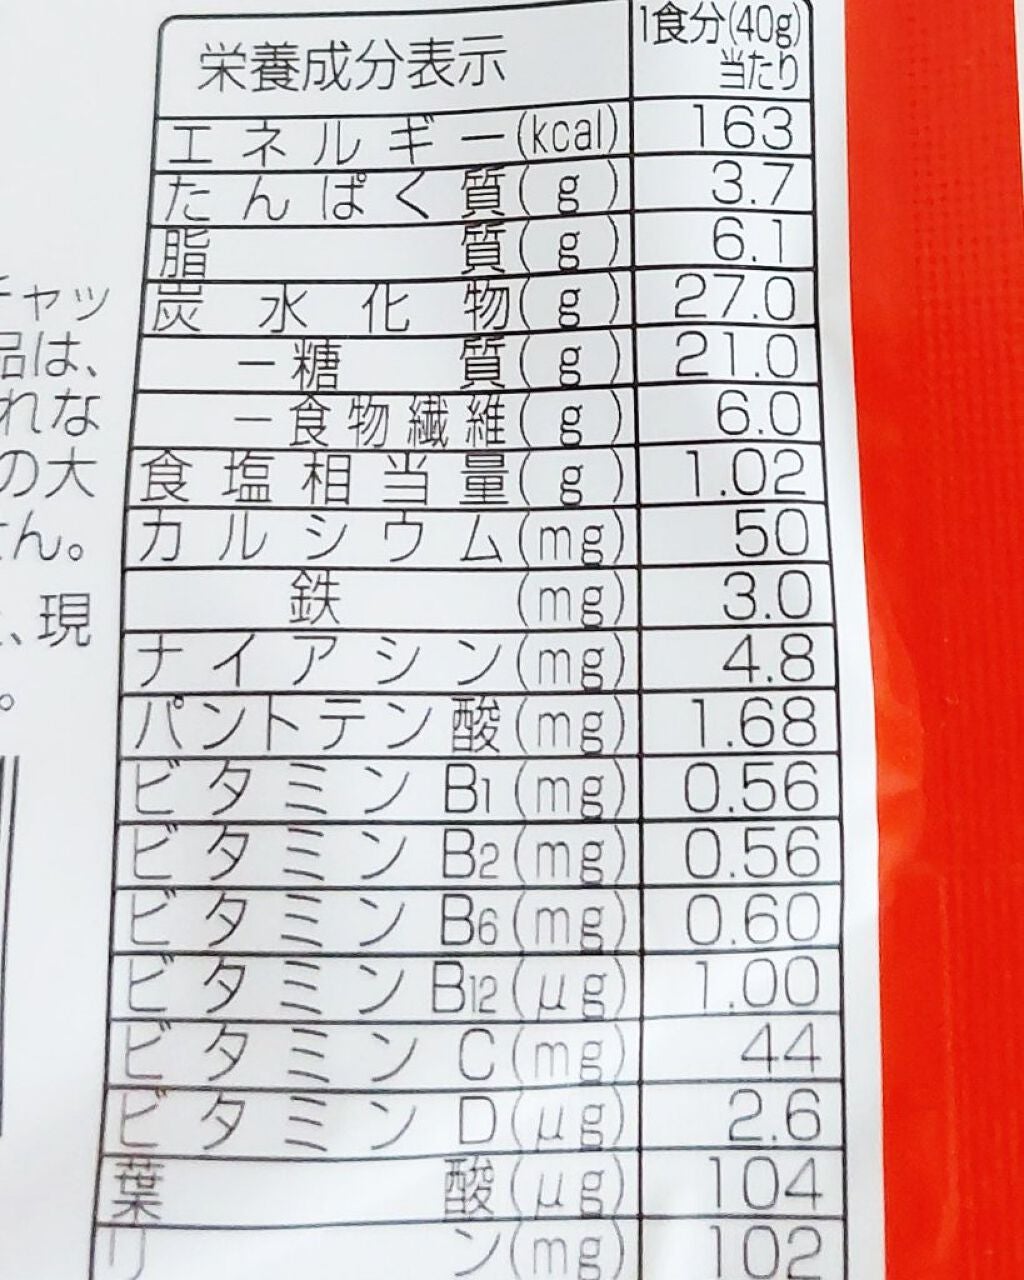 栄養成分表示 1食分(40g)当たり
エネルギー(kcal) 163
たんぱく質(g) 3.7
脂質(g) 6.1
炭水化物(g) 27.0
－糖質(g) 21.0
－食物繊維(g) 6.0
食塩相当量(g) 1.02
カルシウム(mg) 50
鉄(mg) 3.0
ナイアシン(mg) 4.8
パントテン酸(mg) 1.68
ビタミンB1(mg) 0.56
ビタミンB2(mg) 0.56
ビタミンB6(mg) 0.60
ビタミンB12(μg) 1.00
ビタミンC(mg) 44
ビタミンD(μg) 2.6
葉酸(μg) 104
リン(mg) 102
チャッ
品は、
れな
の大
せん。
、現
。